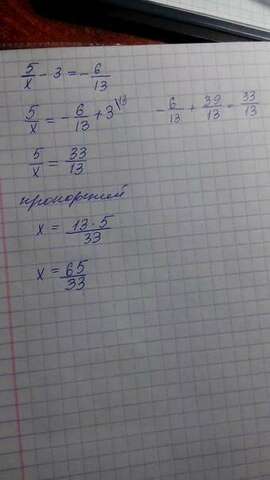 5/x - 3 = - 6/13
5/x = - 6/13 + 3\13   - 6/13 + 39/13 = 33/13
5/x = 33/13
пропорцией
x = 13·5/33
x = 65/33